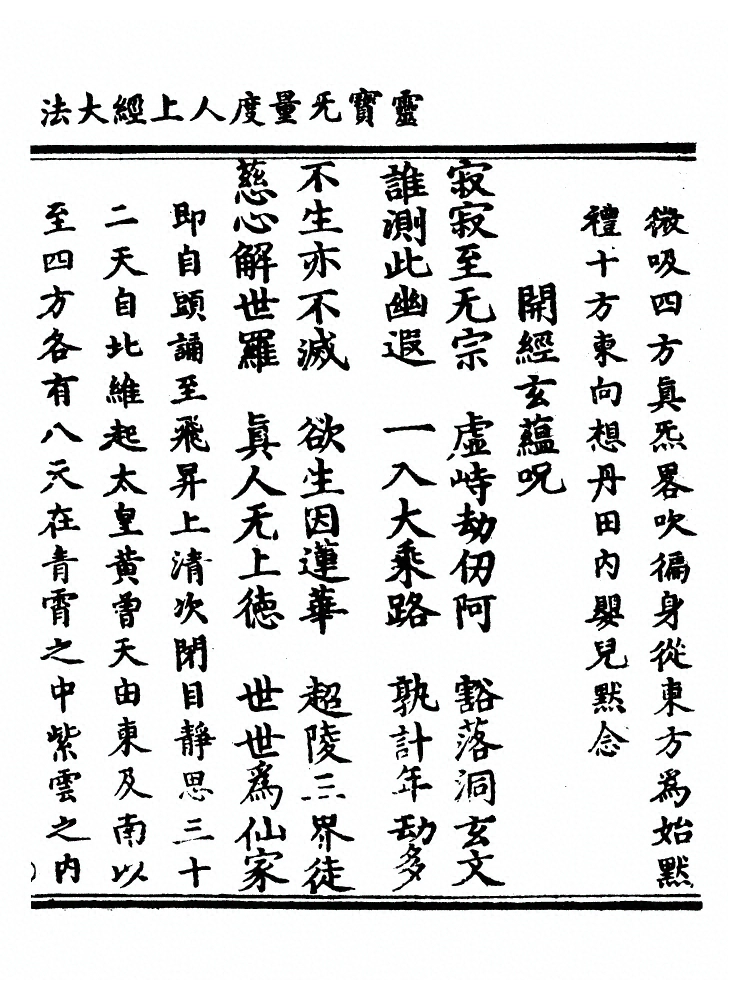 靈寶无量度人上經大法
微吸四方眞炁畧吹徧身從東方爲始默
禮十方東向想丹田內嬰兒默念
開經玄蘊呪
寂寂至无宗　虛峙劫仞阿　豁落洞玄文
誰測此幽遐　一入大乘路　孰計年劫多
不生亦不滅　欲生因蓮華　超陵三界徒
慈心解世羅　眞人无上德　世世爲仙家
即自頭誦至飛昇上清次閉目靜思三十
二天自北維起太皇黃曾天由東及南以
至四方各有八天在青霄之中紫雲之內